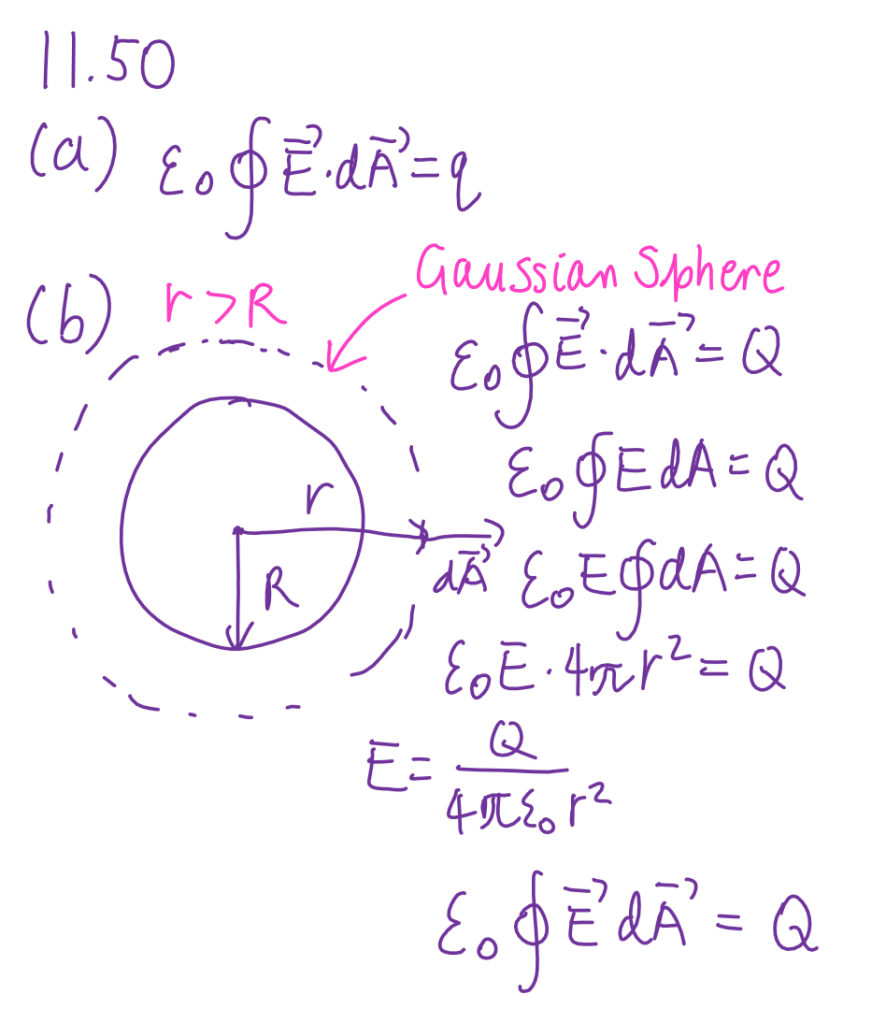 11.50
(a) ε₀∮E⃗·dA⃗=q
Gaussian Sphere
(b) r>R
ε₀∮E⃗·dA⃗=Q
ε₀∮EdA=Q
r
dA⃗
R
ε₀E∮dA=Q
ε₀E·4πr²=Q
E=Q/4πε₀r²
ε₀∮E⃗dA⃗=Q